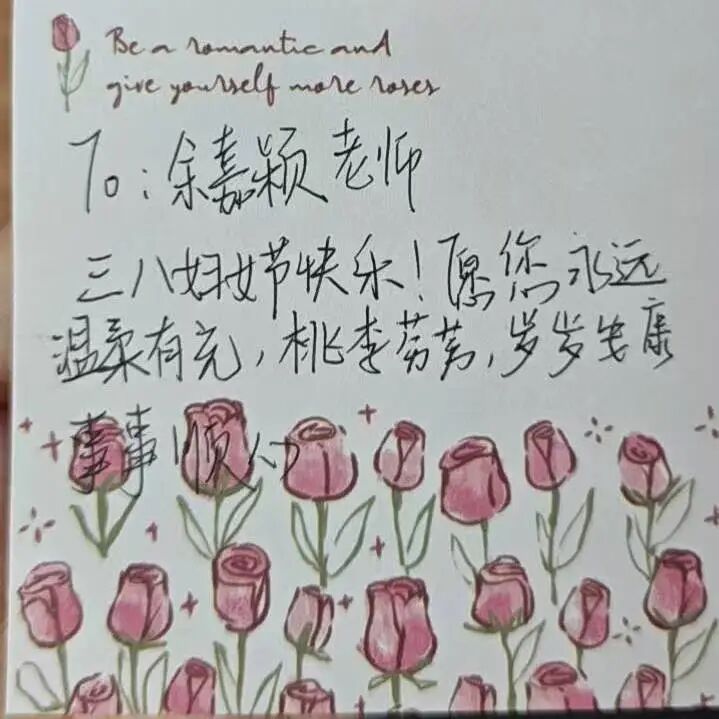 Be a romantic and
give yourself more roses
To:余嘉颖老师
三八妇女节快乐!愿您永远
温柔有光,桃李芬芳,岁岁安康
事事顺心